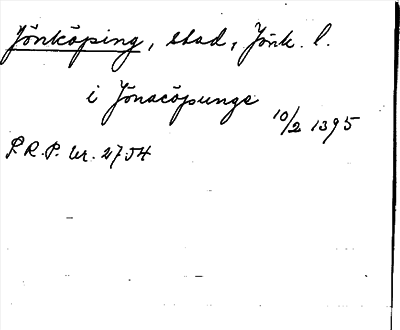 Jönköping, stad, Jönk. l.
i Jönacöpunge
10/2 1395
P.R.P. nr. 2754